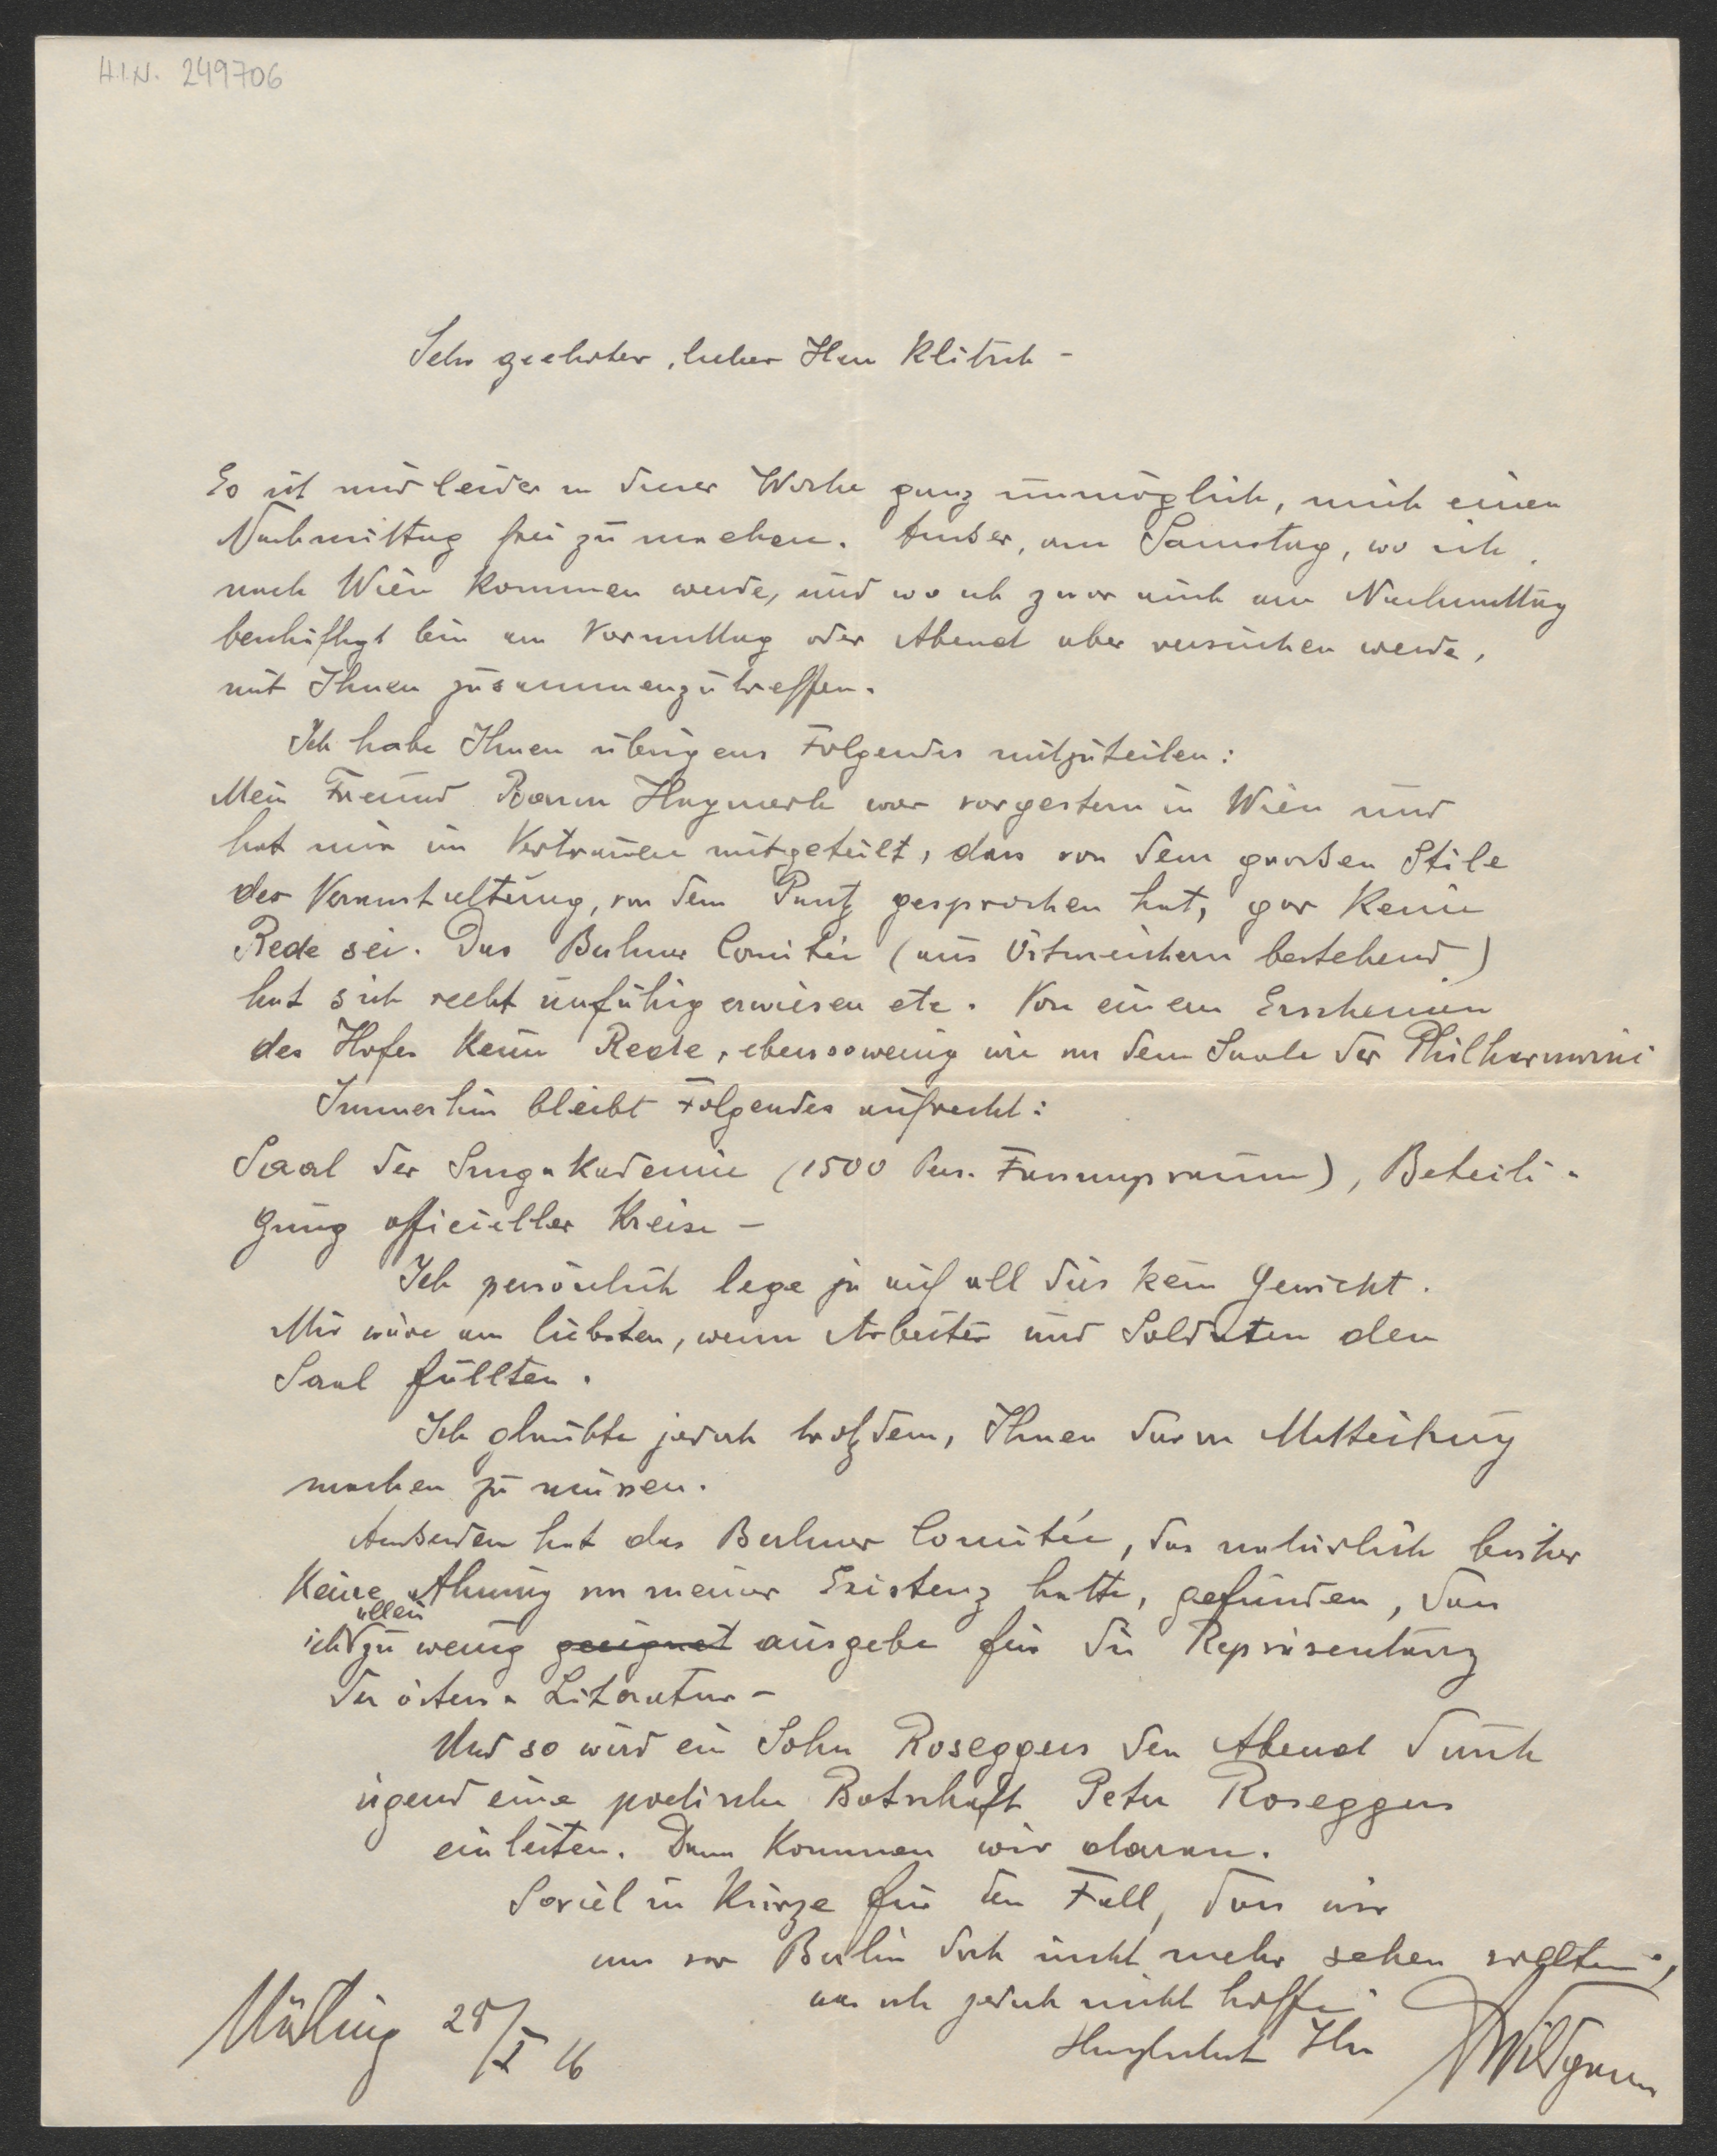 H.I.N. 249706
Sehr geehrter, lieber Herr Klitsch –
Es ist mir leider in dieser Woche ganz unmöglich, mich einen
Nachmittag frei zu machen. Außer, am Samstag, wo ich
nach Wien kommen werde, und wo ich zwar auch am Nachmittag
beschäftigt bin am Vormittag oder Abend aber versuchen werde,
mit Ihnen zusammenzutreffen.
Ich habe Ihnen übrigens Folgendes mitzuteilen:
Mein Freund Baron Haymerle war vorgestern in Wien und
hat mir im Vertrauen mitgeteilt, dass von dem großen Stile
der Veranstaltung, von dem Pantz gesprochen hat, gar keine
Rede sei. Das Berliner Comitée (aus Österreichern bestehend)
hat sich recht unfähig erwiesen etc. Von einem Erscheinen
des Hofes keine Rede, ebensowenig wie von dem Saale der Philharmonie
Immerhin bleibt Folgendes aufrecht:
Saal der Singakademie (1500 Pers. Fassungsraum), Beteili-
gung officieller Kreise –
Ich persönlich lege ja auf all dies kein Gewicht.
Mir wäre am liebsten, wenn Arbeiter und Soldaten den
Saal füllten.
Ich glaubte jedoch trotzdem, Ihnen davon Mitteilung
machen zu müssen.
Außerdem hat das Berliner Comitée, das natürlich bisher
keine Ahnung von meiner Existenz hatte, gefunden, dass
allein
ich zu wenig geeignet ausgebe für die Repräsentanz
der österr. Literatur –
Und so wird ein Sohn Roseggers den Abend durch
irgend eine poetische Botschaft Peter Roseggers
einleiten. Dann kommen wir daran.
Soviel in Kürze für den Fall, dass wir
uns vor Berlin doch nicht mehr sehen sollten,
was ich jedoch nicht hoffe.
Herzlichst Ihr
AWildgans
Mödling 28/I 16